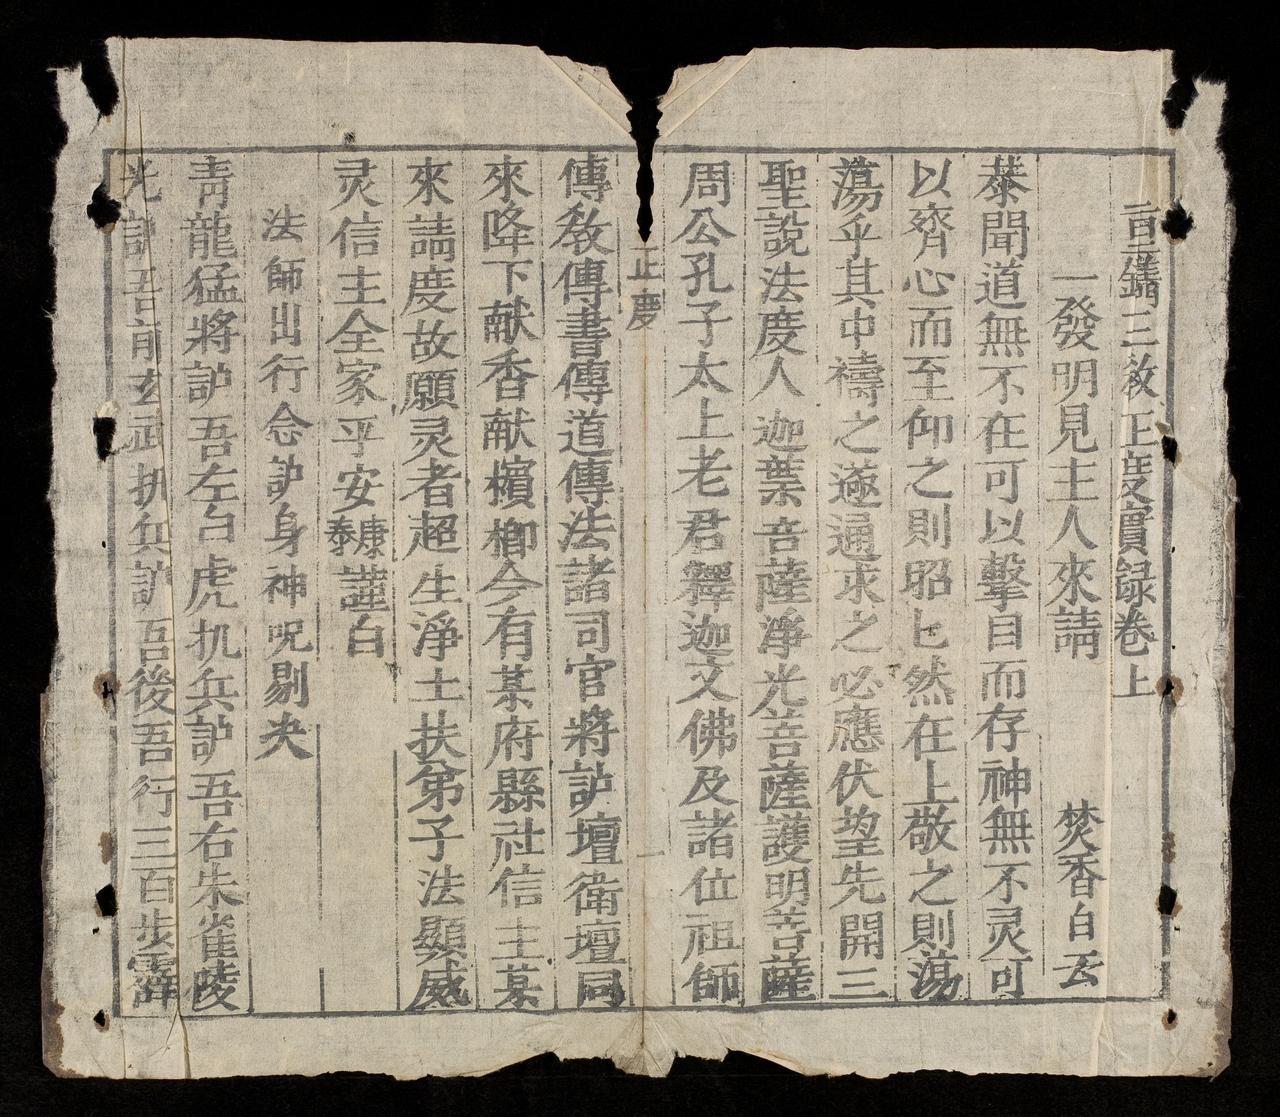 三教正度實録卷上
一發明見主人來請 焚香白云
恭聞道無不在可以擊目而存神無不灵可
以齊心而至仰之則昭匕然在上敬之則蕩
蕩乎其中禱之遂通求之必應伏望先開三
聖說法度人迦葉菩薩淨光菩薩護明菩薩
周公孔子太上老君釋迦文佛及諸位祖師
正度
一
傳教傳書傳道傳法諸司官將護壇衛壇同
來降下献香献檳榔今有某府縣社信主某
來請度故願灵者超生淨土扶弟子法顯威
灵信主全家平安康泰謹白
法師出行念護身神呪剔决
青龍猛將護吾左白虎扒兵護吾右朱雀陵
光護吾前玄武扒兵護吾後吾行三百步